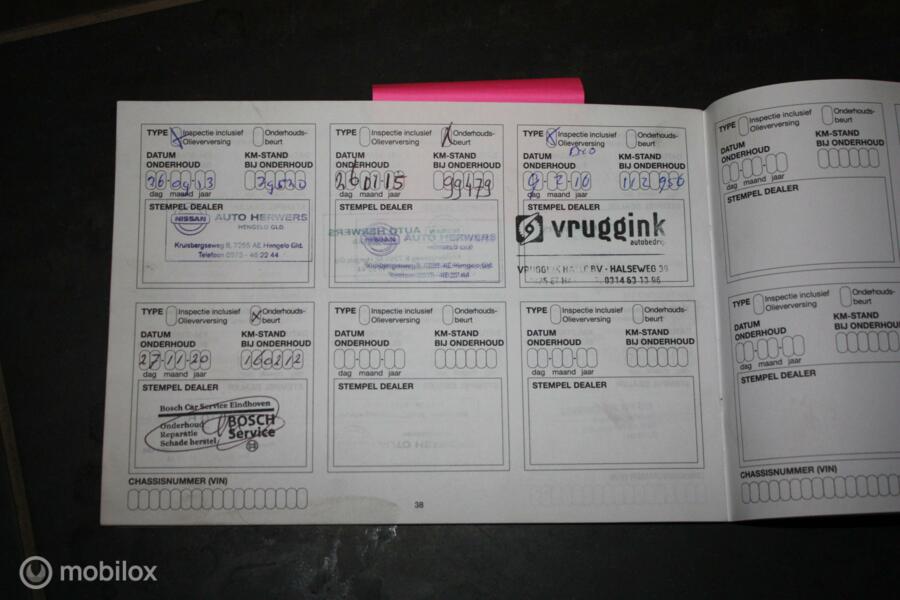 TYPE Inspectie inclusief Olieverversing Onderhouds-beurt
DATUM ONDERHOUD
KM-STAND BIJ ONDERHOUD
26 09 13
dag maand jaar
STEMPEL DEALER
NISSAN AUTO HERWERS
HENGELO GLD.
Kruisbergseweg 8, 7255 AE Hengelo Gld.
Telefoon 0575 - 46 22 44
TYPE Inspectie inclusief Olieverversing Onderhouds-beurt
DATUM ONDERHOUD
KM-STAND BIJ ONDERHOUD
26 11 15
99479
dag maand jaar
STEMPEL DEALER
AUTO HERWERS
TYPE Inspectie inclusief Olieverversing Onderhouds-beurt
DATUM ONDERHOUD
KM-STAND BIJ ONDERHOUD
112 956
dag maand jaar
STEMPEL DEALER
vruggink
autobedrij
HALSEWEG 39
0314 63 13 96
TYPE Inspectie inclusief Olieverversing Onderhouds-beurt
DATUM ONDERHOUD
KM-STAND BIJ ONDERHOUD
27-11-20
160212
dag maand jaar
STEMPEL DEALER
Bosch Car Service Eindhoven
Onderhoud
Reparatie
Schade herstel
BOSCH
Service
TYPE Inspectie inclusief Olieverversing Onderhouds-beurt
DATUM ONDERHOUD
KM-STAND BIJ ONDERHOUD
dag maand jaar
STEMPEL DEALER
TYPE Inspectie inclusief Olieverversing Onderhouds-beurt
DATUM ONDERHOUD
KM-STAND BIJ ONDERHOUD
dag maand jaar
STEMPEL DEALER
CHASSISNUMMER (VIN)
38
TYPE Inspectie inclusief Olieverversing Onderhouds-beurt
DATUM ONDERHOUD
KM-STAND BIJ ONDERHOUD
dag maand jaar
STEMPEL DEALER
TYPE Inspectie inclusief Olieverversing Onderhouds-beurt
DATUM ONDERHOUD
KM-STAND BIJ ONDERHOUD
dag maand jaar
STEMPEL DEALER
CHASSISNUMMER (VIN)
mobilox